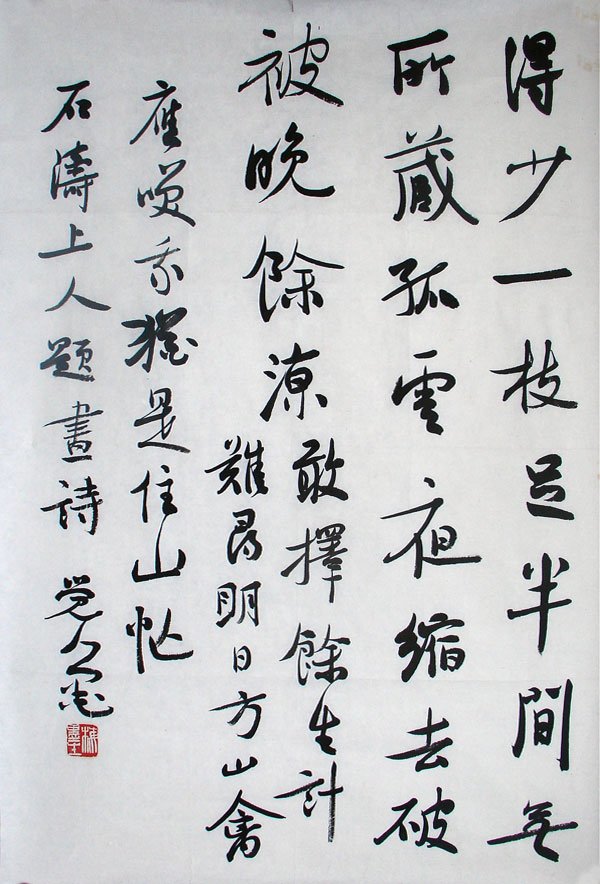 得少一枝足半間無
所藏孤雲夜縮去破
被晚餘涼
敢擇餘生計
難尋明日方山禽
應咲我猶是住山忙
石濤上人題畫詩